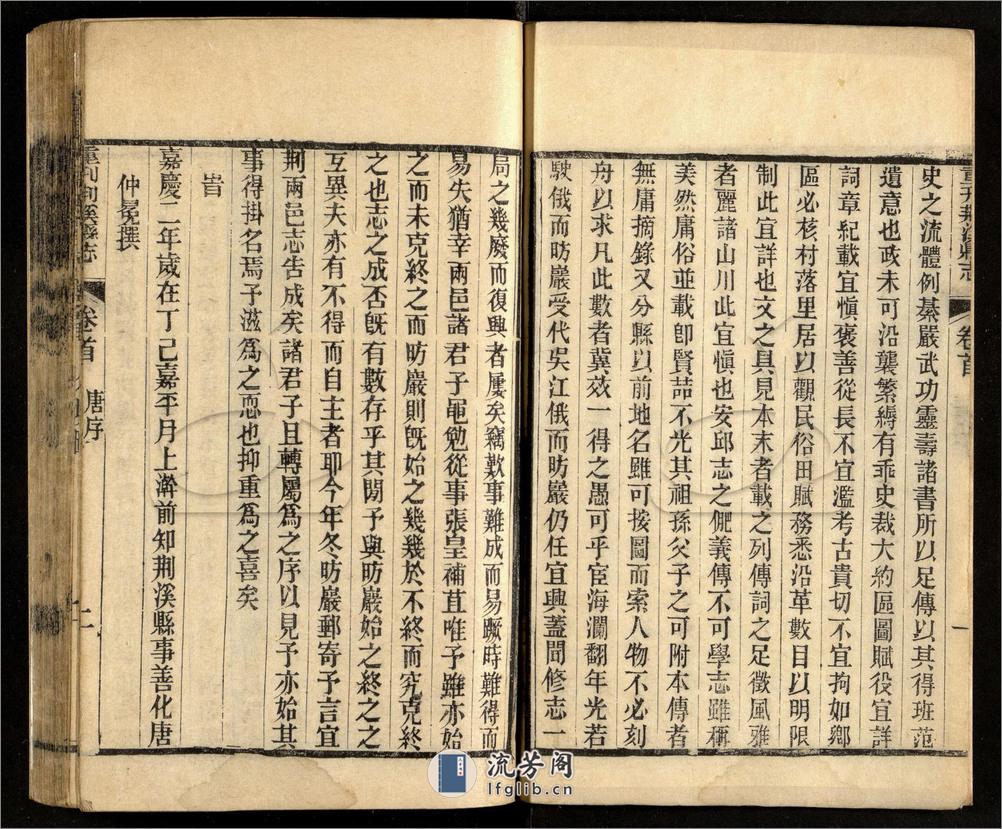 重刊荆溪縣志 卷首 一
史之流體例綦嚴武功靈壽諸書所以足傳以其得班范
遺意也政未可沿襲繁縟有乖史裁大約區圖賦役宜詳
詞章紀載宜愼褒善從長不宜濫考古貴切不宜拘如鄉
區必核村落里居以觀民俗田賦務悉沿革數目以明限
制此宜詳也文之具見本末者載之列傳詞之足徵風雅
者麗諸山川此宜愼也安邱志之俪義傳不可學志雖稱
美然庸俗並載卽賢喆不光其祖孫父子之可附本傳者
無庸摘錄又分縣以前地名雖可按圖而索人物不必刻
舟以求凡此數者冀效一得之愚可乎宦海瀾翻年光若
駛俄而昉巖受代吳江俄而昉巖仍任宜興蓋問修志一
局之幾廢而復興者屢矣竊歎事難成而易蹶時難得而
易失猶幸兩邑諸君子黽勉從事張皇補苴唯予雖亦始
之而未克終之而昉巖則旣始之幾幾於不終而究克終
之也志之成否旣有數存乎其閒予與昉巖始之終之之
互異夫亦有不得而自主者耶今年冬昉巖郵寄予言宜
荆兩邑志告成矣諸君子且轉屬爲之序以見予亦始其
事得掛名焉予滋爲之恧也抑重爲之喜矣
旹
嘉慶二年歲在丁巳嘉平月上澣前知荆溪縣事善化唐
仲冕撰
重刊荆溪縣志 卷首 唐序 二
流芳阁
lfglib.cn